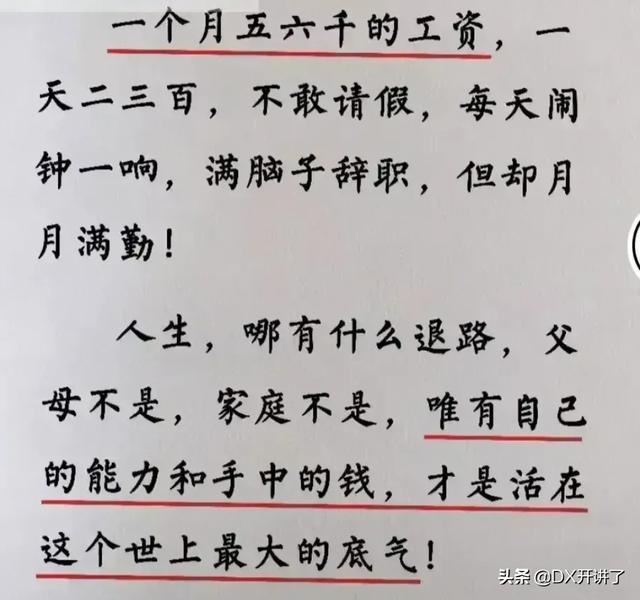 一个月五六千的工资，一
天二三百，不敢请假，每天闹
钟一响，满脑子辞职，但却月
月满勤！
人生，哪有什么退路，父
母不是，家庭不是，唯有自己
的能力和手中的钱，才是活在
这个世上最大的底气！
头条 @DX开讲了